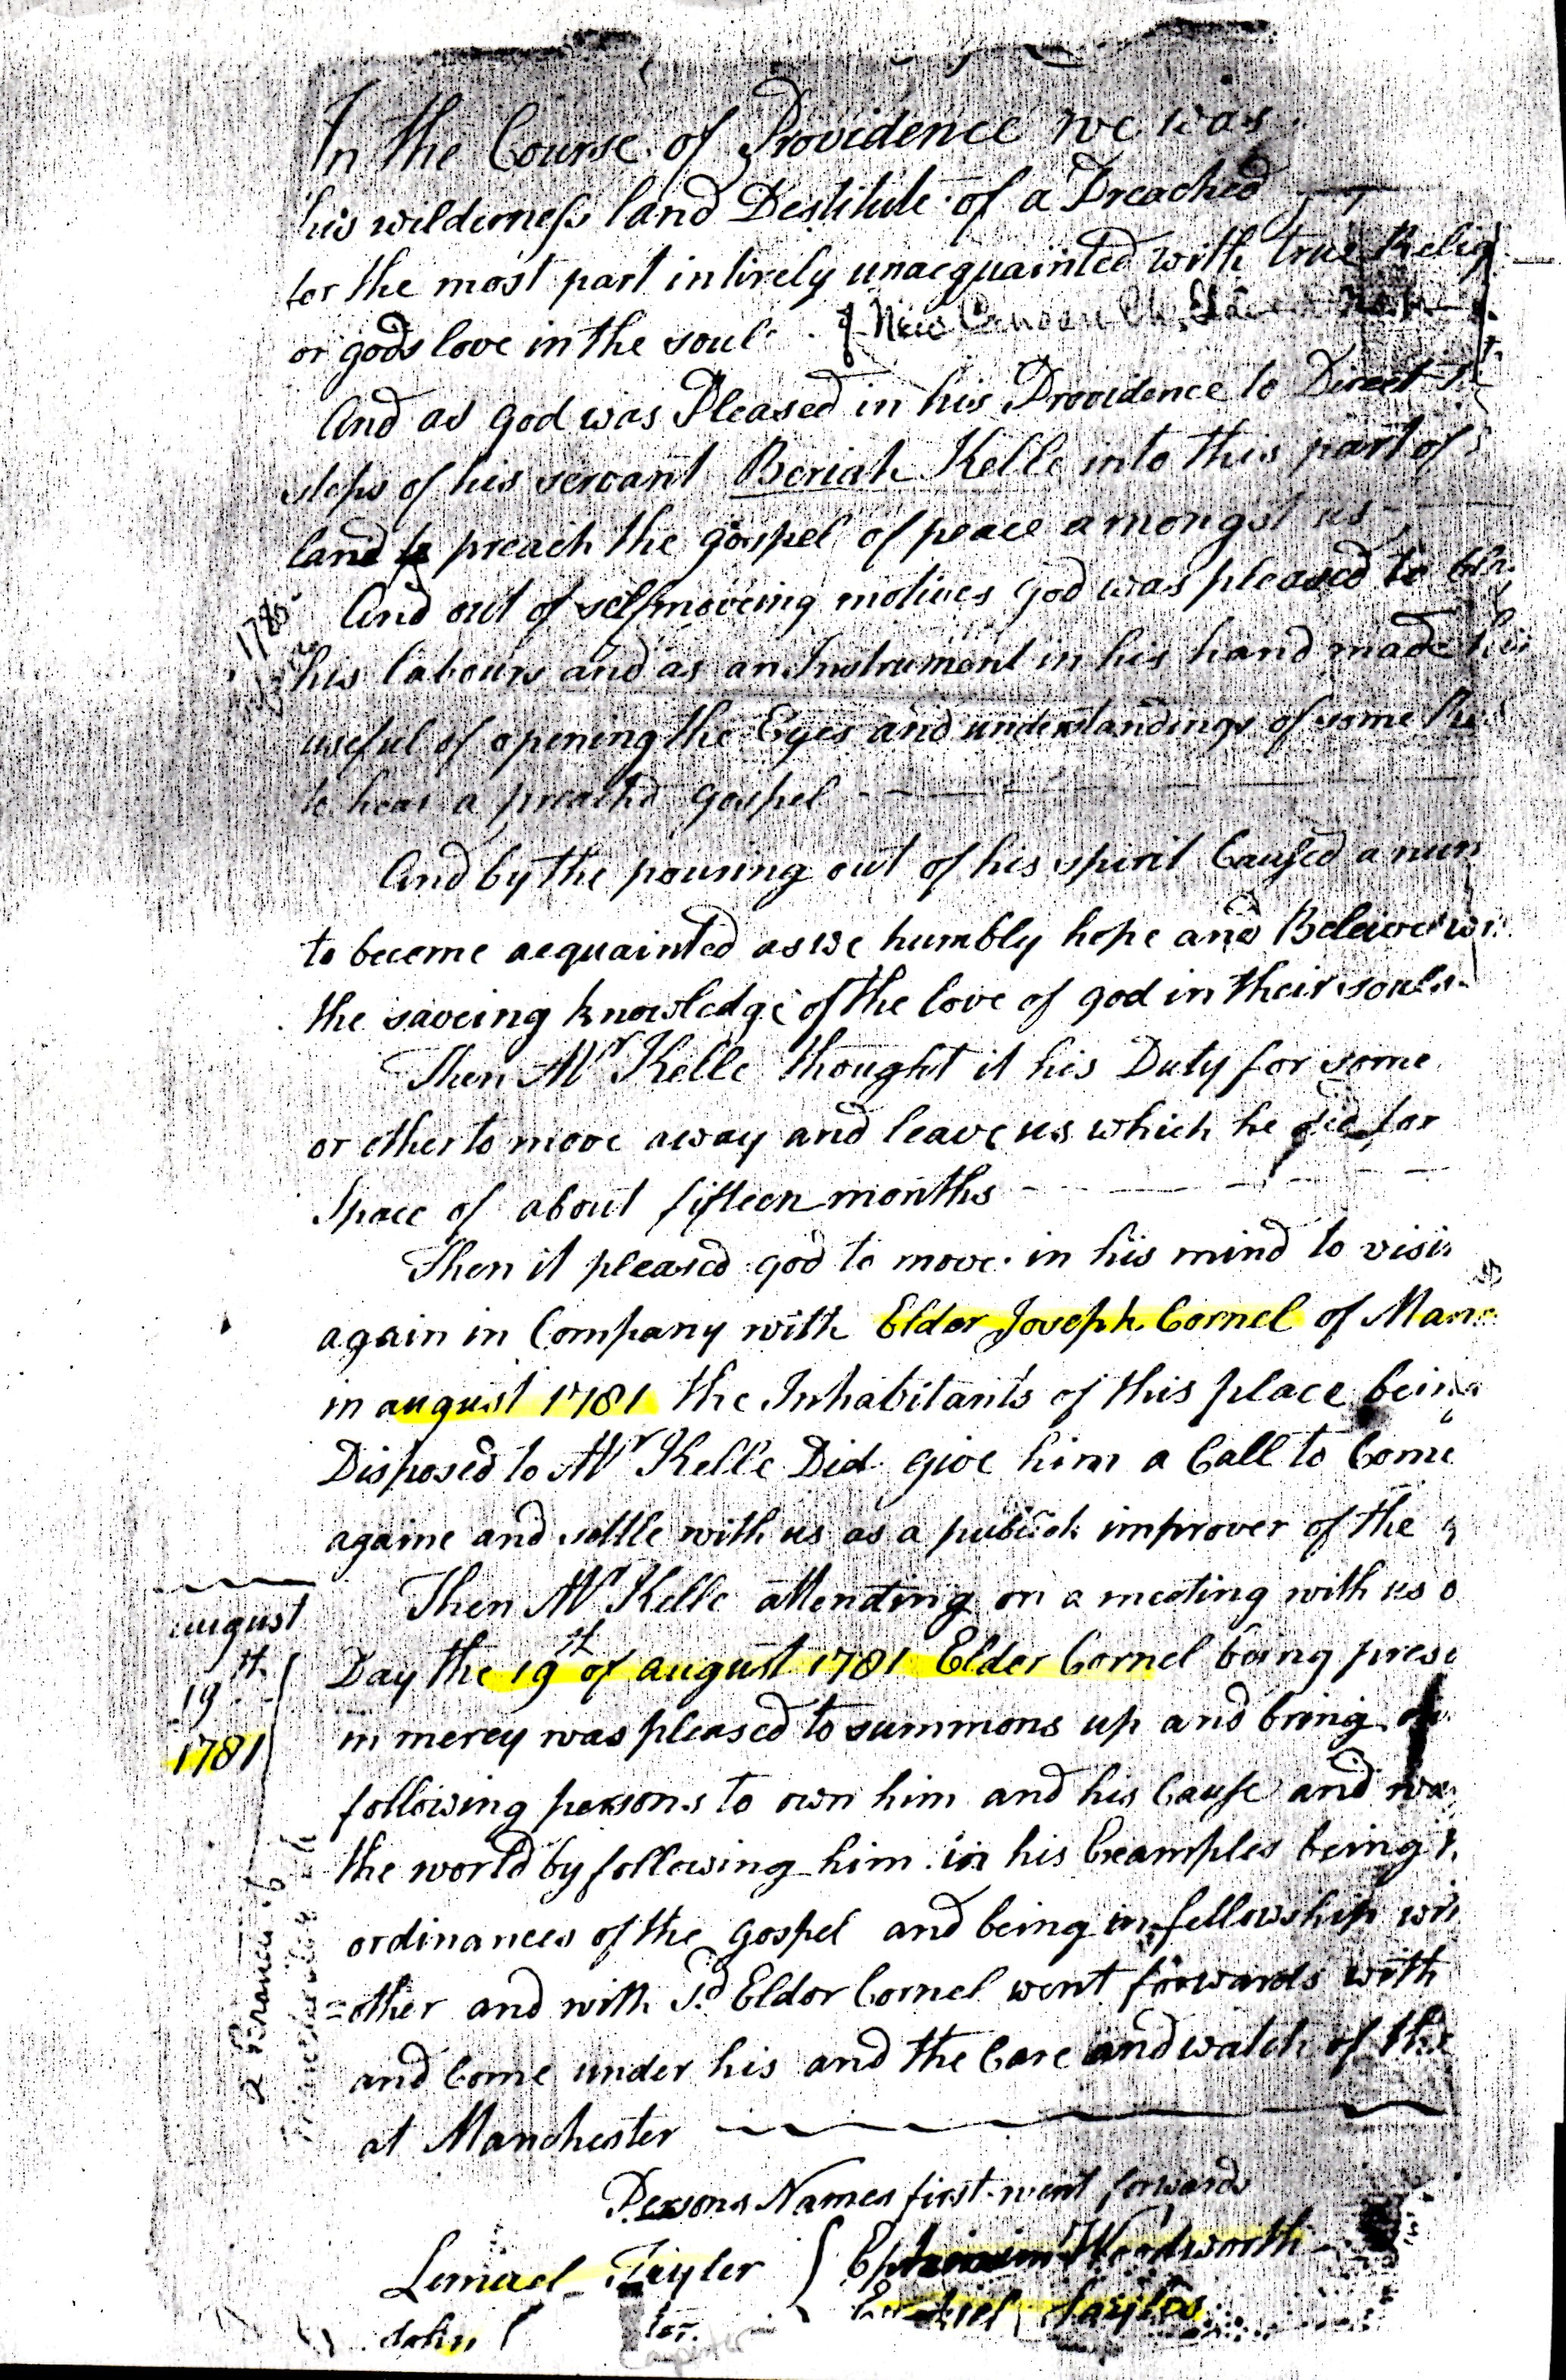 In the Course of Providence we was
his wilderness land Destitute of a Preached
for the most part intirely unacquainted with true Relig
or gods love in the soul
New Canaan Ch.
And as god was Pleased in his Providence to Direct
steps of his servant Beriah Kelle into this part of
land to preach the gospel of peace amongst us
And out of selfmoveing motives god was pleased to
1780
his labours and as an Instrument in his hand made
useful of opening the Eyes and understandings of some
to hear a preach'd gospel
And by the pouring out of his spirit Caused a num
to become acquainted as we humbly hope and Beleive wi
the saveing knowledge of the love of god in their souls
Then Mr Kelle thought it his Duty for some
or other to move away and leave us which he did for
Space of about fifteen months
Then it pleased god to move in his mind to visi
again in Company with Elder Joseph Cornel of Man
in august 1781 the Inhabitants of this place being
Disposed to Mr Kelle Did give him a Call to Come
againe and settle with us as a publick improver of the g
Then Mr Kelle attending on a meeting with us o
august
19th
1781
Day the 19th of august 1781 Elder Cornel being prese
in mercy was pleased to summons up and bring
following persons to own him and his Cause and
the world by following him in his Examples being
ordinances of the gospel and being in fellowship wit
=other and with Sd Elder Cornel went forwards with
and Come under his and the Care and watch of the
at Manchester
a Branch of
Persons Names first went forwards
Lemuel Tayler { Ephraim Wordworth
John Ezekiel Taylor
Carpenter